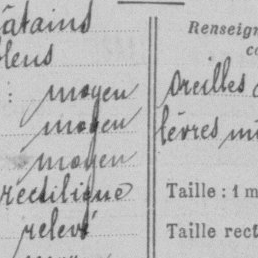 châtains
bleus
: moyen
moyen
moyen
rectiligne
relevé
Renseign
co
Oreilles
lèvres mi
Taille : 1 m
Taille rect